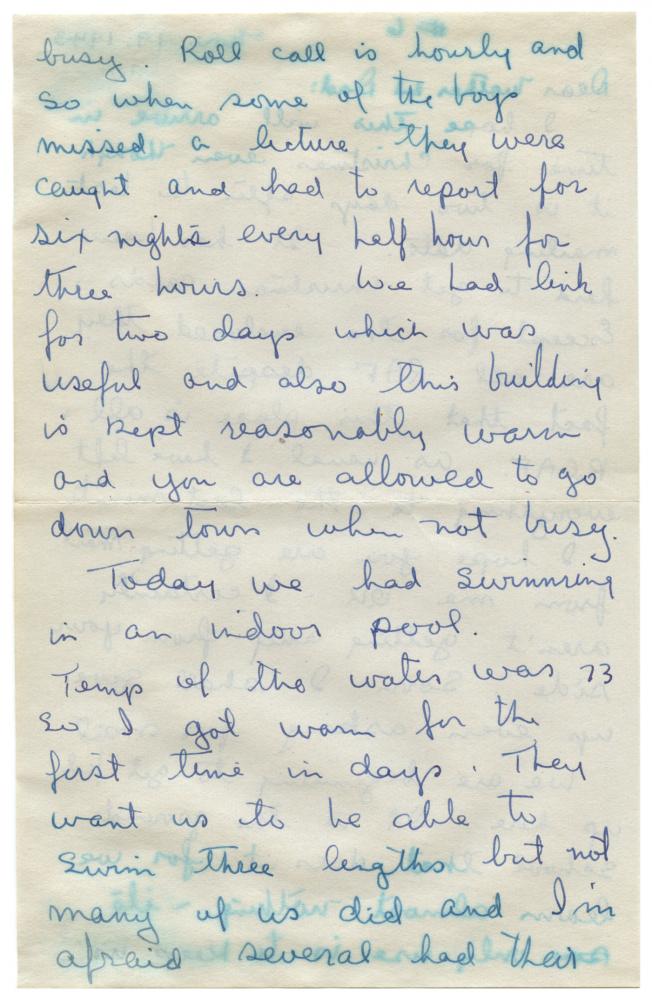 busy. Roll call is hourly and
so when some of the boys
missed a lecture they were
caught and had to report for
six nights every half hour for
three hours. We had link
for two days which was
useful and also this building
is kept reasonably warm
and you are allowed to go
down town when not busy.
Today we had swimming
in an indoor pool.
Temp of the water was 73
so I got warm for the
first time in days. They
want us to be able to
swim three lengths but not
many of us did and I'm
afraid several had their